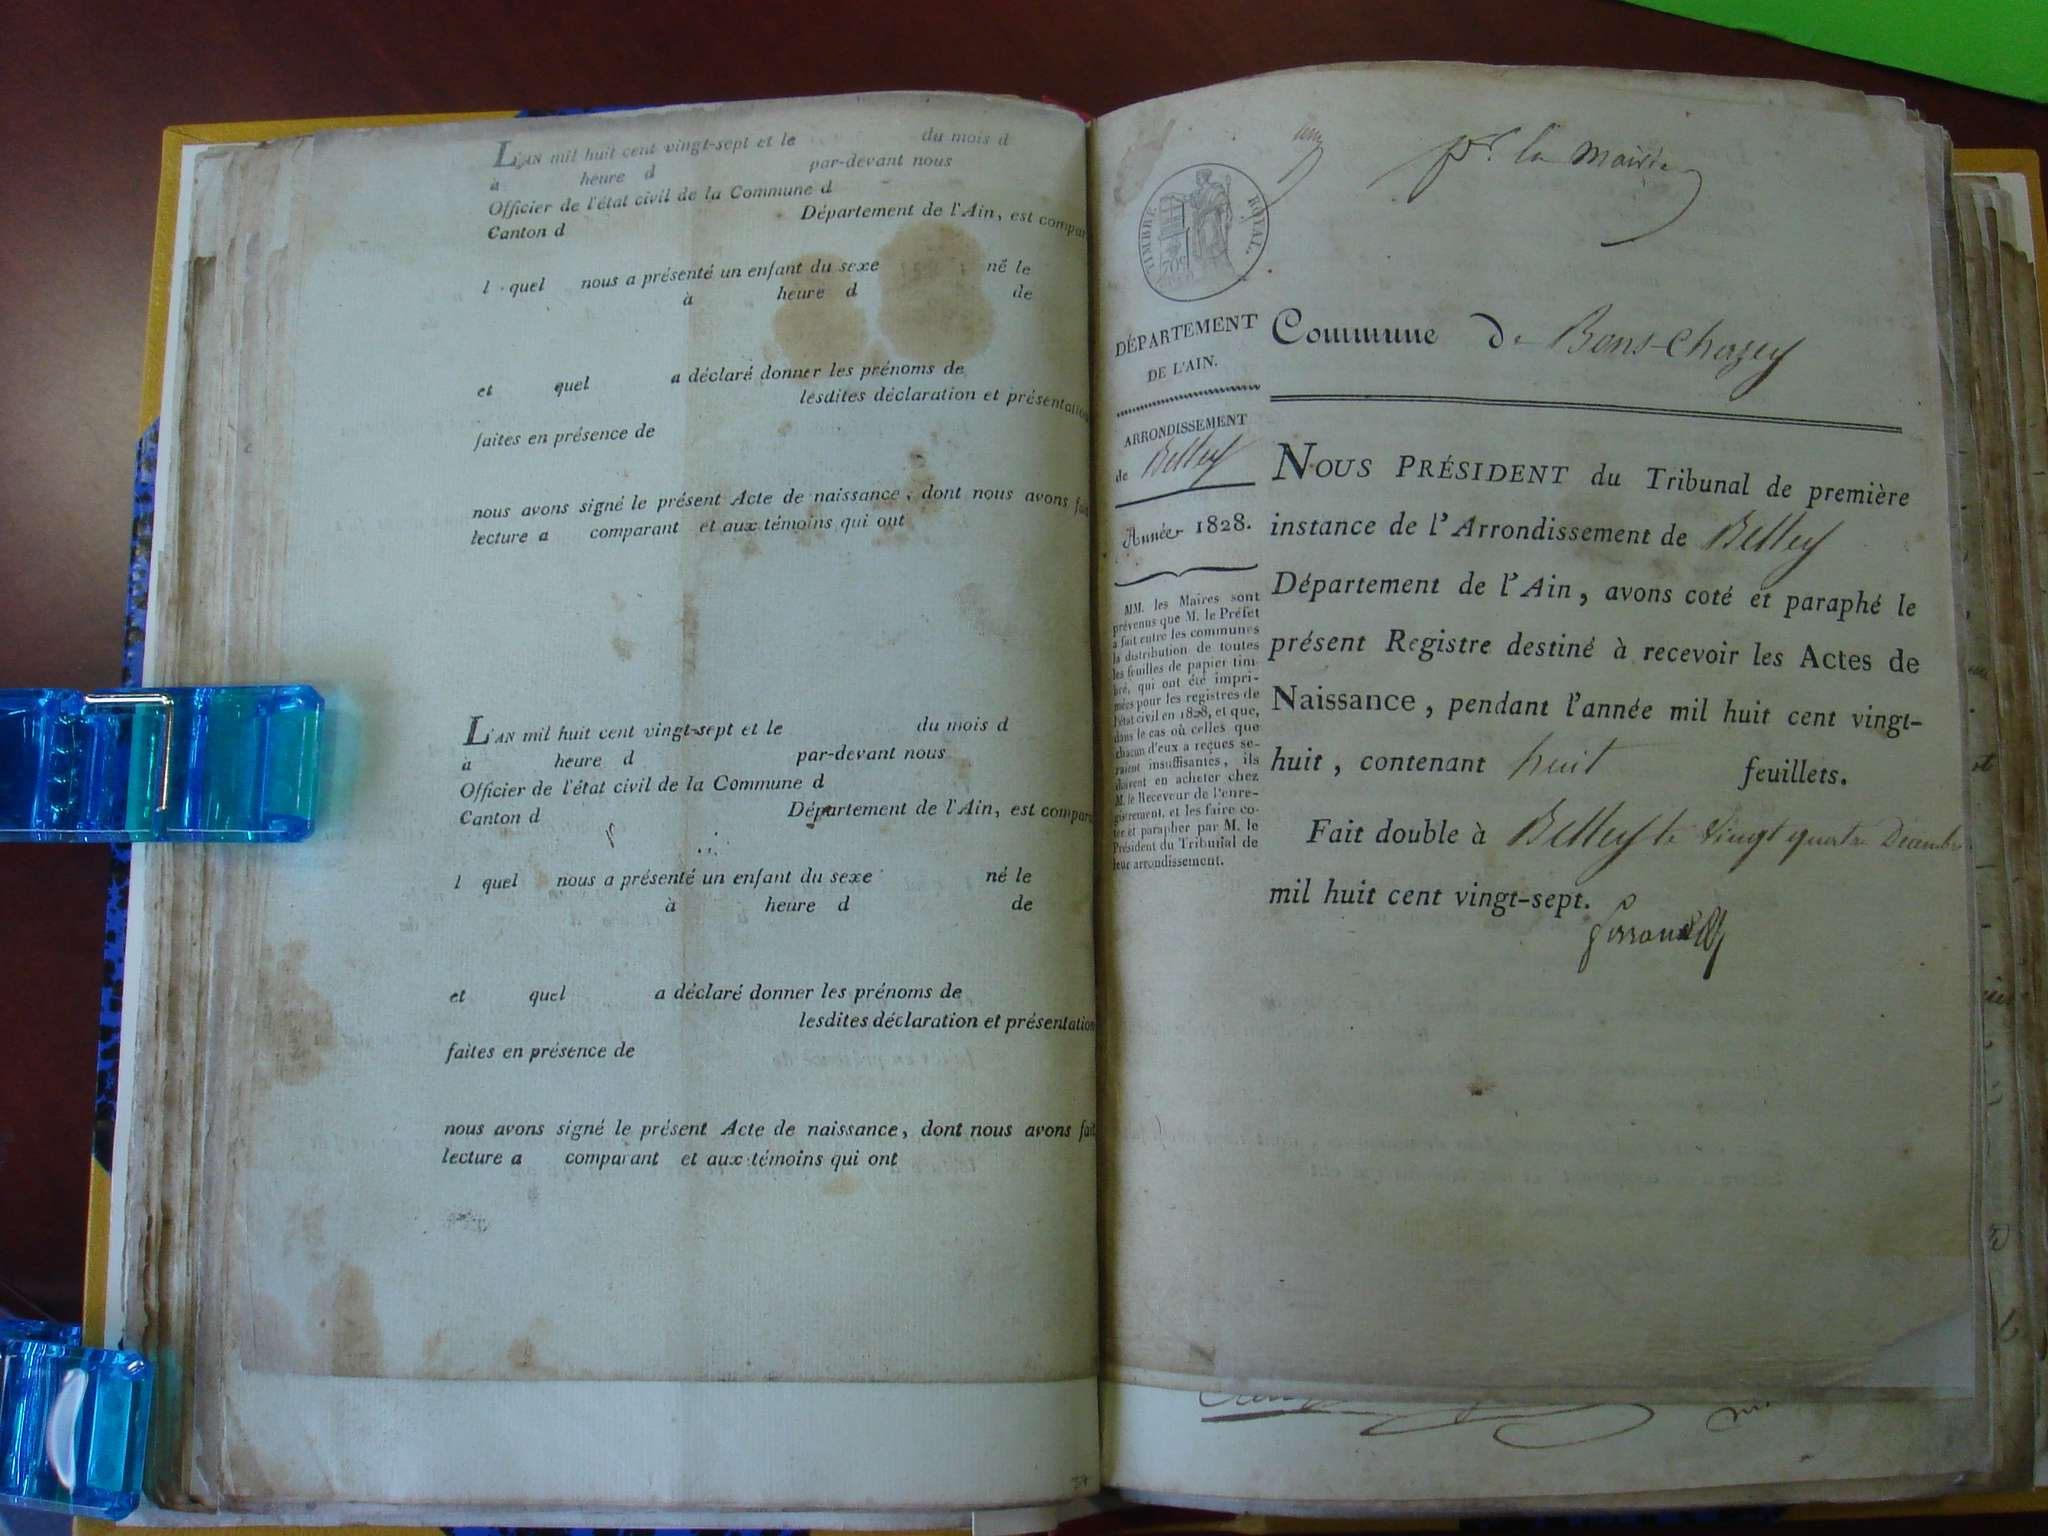 L'AN mil huit cent vingt-sept et le du mois d
a heure d par-devant nous
Officier de l'état civil de la Commune d
Canton d Département de l'Ain, est compar
l quel nous a présenté un enfant du sexe né le
à heure d de
et quel a déclaré donner les prénoms de
lesdites déclaration et présentation
faites en présence de
nous avons signé le présent Acte de naissance, dont nous avons fait
lecture a comparant et aux témoins qui ont
L'AN mil huit cent vingt-sept et le du mois d
a heure d par-devant nous
Officier de l'état civil de la Commune d
Canton d Département de l'Ain, est compara
l quel nous a présenté un enfant du sexe né le
à heure d de
et quel a déclaré donner les prénoms de
lesdites déclaration et présentation
faites en présence de
nous avons signé le présent Acte de naissance, dont nous avons fait
lecture a comparant et aux témoins qui ont
pr. la mairie
TIMBRE ROYAL
DÉPARTEMENT
DE L'AIN.
ARRONDISSEMENT
de Belley
Année 1828.
MM. les Maires sont
prévenus que M. le Préfet
a fait entre les communes
la distribution de toutes
les feuilles de papier tim-
bré, qui ont été impri-
mées pour les registres de
l'état civil en 1828, et que,
dans le cas où celles que
chacun d'eux a reçues se-
raient insuffisantes, ils
doivent en acheter chez
M. le Receveur de l'enre-
gistrement, et les faire co-
ter et parapher par M. le
Président du Tribunal de
leur arrondissement.
Commune de Bons-Chazey
NOUS PRÉSIDENT du Tribunal de première
instance de l'Arrondissement de Belley
Département de l'Ain, avons coté et paraphé le
présent Registre destiné à recevoir les Actes de
Naissance, pendant l'année mil huit cent vingt-
huit, contenant huit feuillets.
Fait double à Belley le vingt quatre Décembre
mil huit cent vingt-sept.